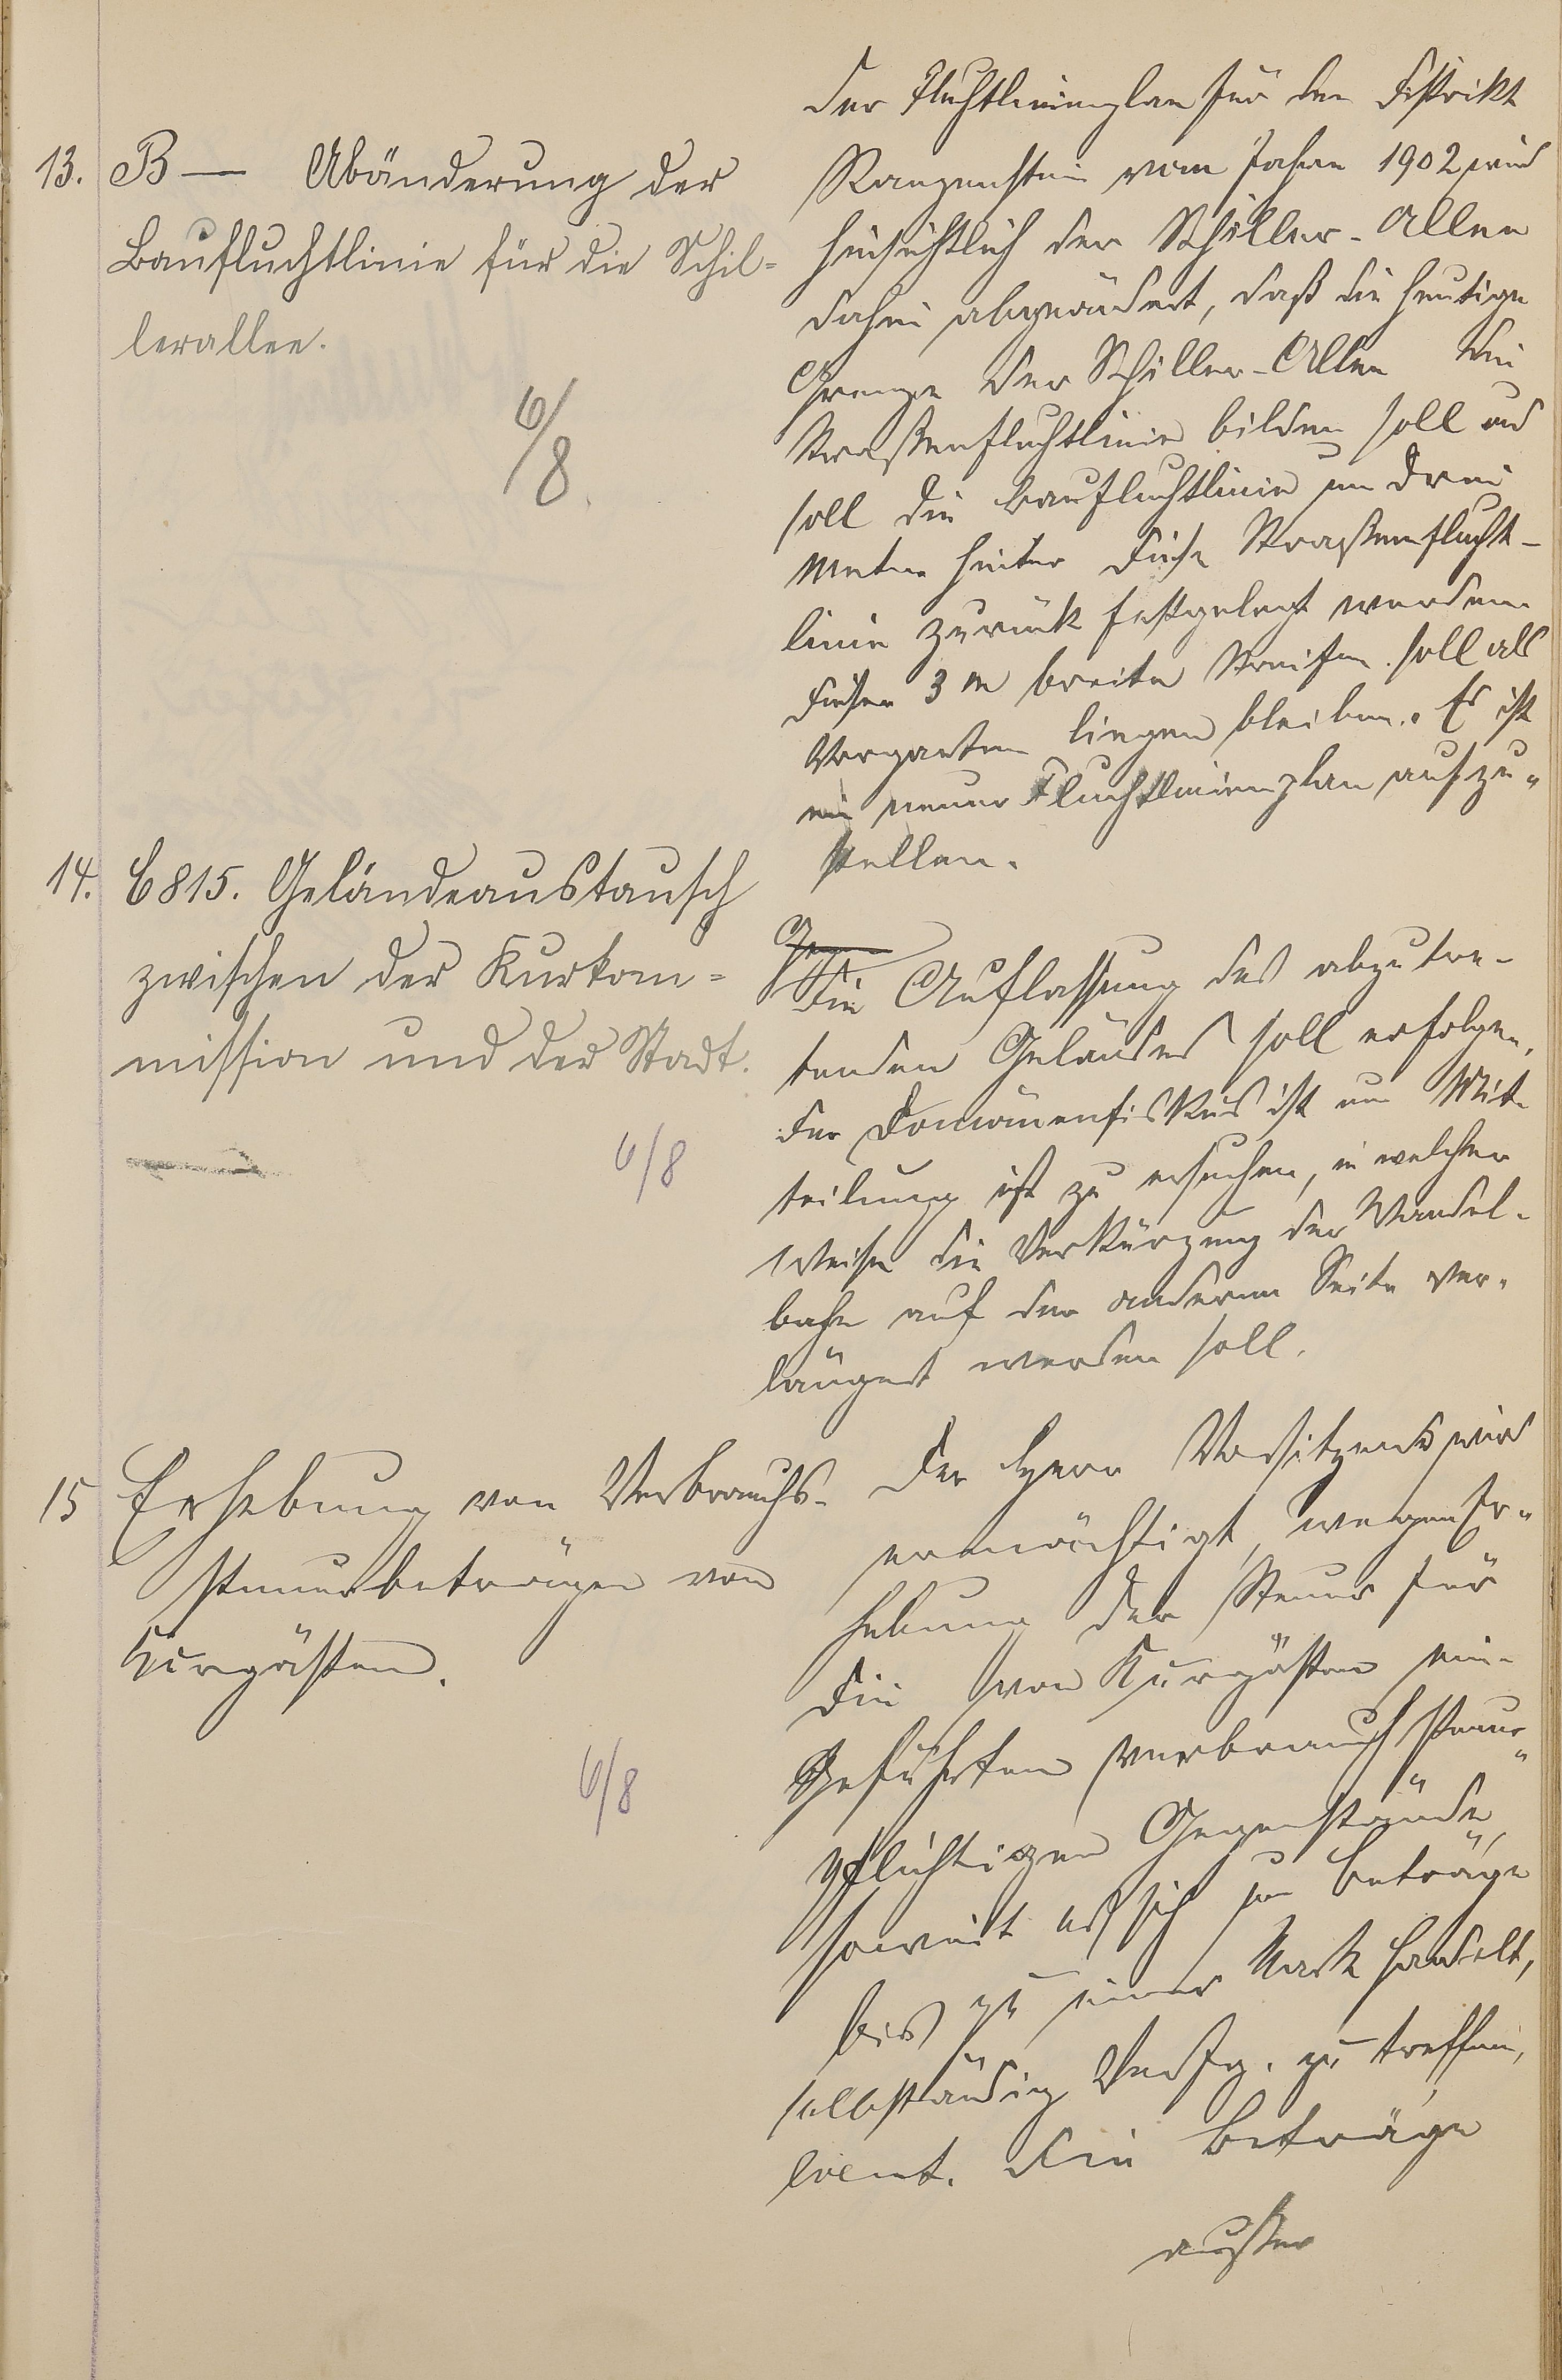 13. B — Abänderung der
Baufluchtlinie für die Schil-
lerallee.
6/8.
Der Fluchtlinienplan für den Distrikt
vom Jahre 1902 wird
hinsichtlich der Schiller-Allee
dahin abgeändert, daß die heutige
Grenze der Schiller-Allee die
Straßenfluchtlinie bilden soll und
soll die Baufluchtlinie um drei
Meter hinter diese Straßenflucht-
linie zurück festgelegt werden.
Dieser 3 m breite Streifen soll als
Vorgarten liegen bleiben. Es ist
ein neuer Fluchtlinienplan aufzu-
stellen.
14. C 815. Geländeaustausch
zwischen der Kurkom-
mission und der Stadt.
6/8
Die Auflassung des abzutre-
tenden Geländes soll erfolgen.
Der Domänenfiskus ist um Mit-
teilung ist zu ersuchen, in welcher
Weise die Verkürzung der Wandel-
bahn auf der anderen Seite ver-
längert werden soll.
15 Erhebung von Verbrauchs-
steuerbeträgen von
Kurgästen.
6/8
Der Herr Vorsitzende wird
ermächtigt, wegen Er-
hebung der Steuer für
die von Kurgästen ein-
geführten verbrauchssteuer-
pflichtigen Gegenstände,
soweit es sich um Beträge
bis zu einer Mark handelt,
selbständig Verfg. zu treffen,
event. die Beträge
außer